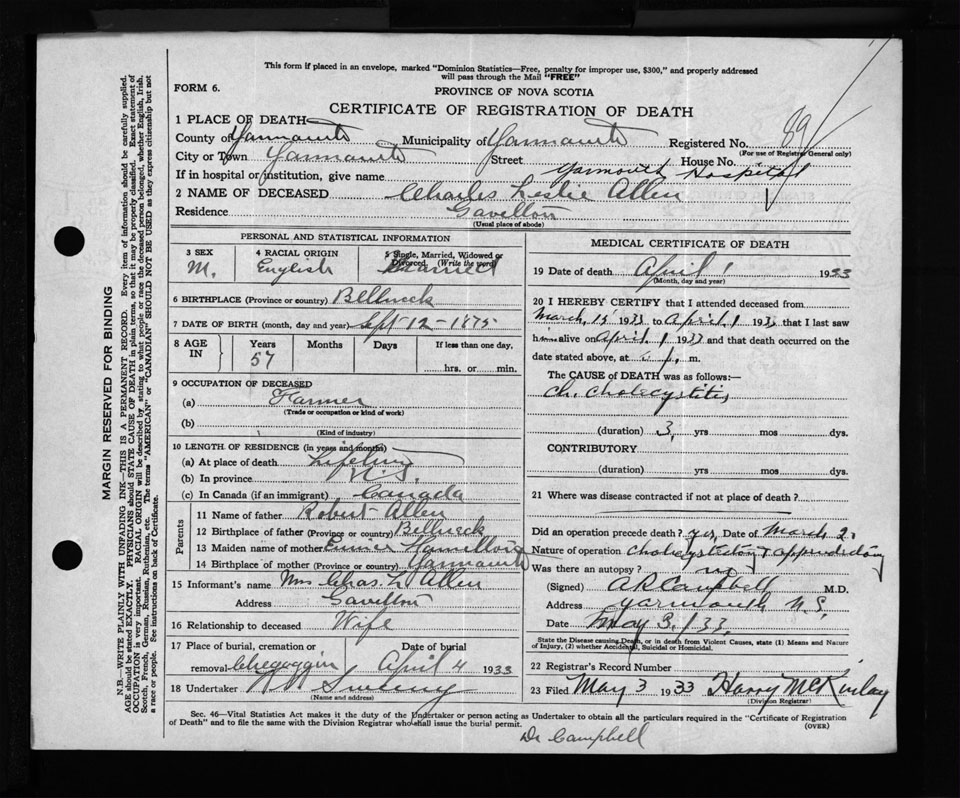 This form if placed in an envelope, marked "Dominion Statistics—Free, penalty for improper use, $300," and properly addressed
will pass through the Mail "FREE"
FORM 6.
PROVINCE OF NOVA SCOTIA
CERTIFICATE OF REGISTRATION OF DEATH
89
1 PLACE OF DEATH
County of Yarmouth Municipality of Yarmouth Registered No.
(For use of Registrar General only)
City or Town Yarmouth Street House No.
If in hospital or institution, give name Yarmouth Hospital
2 NAME OF DECEASED Charles Leslie Allen
Residence Gavelton
(Usual place of abode)
PERSONAL AND STATISTICAL INFORMATION
3 SEX 4 RACIAL ORIGIN 5 Single, Married, Widowed or Divorced. (Write the word)
M. English Married
6 BIRTHPLACE (Province or country) Bellneck
7 DATE OF BIRTH (month, day and year) Sept 12 - 1875
8 AGE IN Years Months Days If less than one day,
57 hrs. or min.
9 OCCUPATION OF DECEASED
(a) Farmer
(Trade or occupation or kind of work)
(b)
(Kind of industry)
10 LENGTH OF RESIDENCE (in years and months)
(a) At place of death Lifetime
(b) In province N.S.
(c) In Canada (if an immigrant) Canada
Parents
11 Name of father Robert Allen
12 Birthplace of father (Province or country) Bellneck
13 Maiden name of mother Hamilton
14 Birthplace of mother (Province or country) Yarmouth
15 Informant's name Mrs Chas. L Allen
Address Gavelton
16 Relationship to deceased Wife
17 Place of burial, cremation or Date of burial
removal Chegoggin April 4 1933
18 Undertaker Sweeny
(Name and address)
MEDICAL CERTIFICATE OF DEATH
19 Date of death April 1 1933
(Month, day and year)
20 I HEREBY CERTIFY that I attended deceased from
March 15 1933 to April 1 1933 that I last saw
him alive on April 1 1933 and that death occurred on the
date stated above, at p. m.
The CAUSE of DEATH was as follows:—
Ch. Cholecystitis
(duration) 3 yrs mos dys.
CONTRIBUTORY
(duration) yrs mos dys.
21 Where was disease contracted if not at place of death?
Did an operation precede death? yes Date of March 2
Nature of operation Cholecystectomy & appendectomy
Was there an autopsy? no
(Signed) A R Campbell M.D.
Address Yarmouth N.S.
Date May 3/33
State the Disease causing Death, or in death from Violent Causes, state (1) Means and Nature
of Injury, (2) whether Accidental, Suicidal or Homicidal.
22 Registrar's Record Number
23 Filed May 3 1933 Harry McKinlay
(Division Registrar)
Sec. 46—Vital Statistics Act makes it the duty of the Undertaker or person acting as Undertaker to obtain all the particulars required in the "Certificate of Registration
of Death" and to file the same with the Division Registrar who shall issue the burial permit.
(OVER)
Dr Campbell
MARGIN RESERVED FOR BINDING
N.B.—WRITE PLAINLY WITH UNFADING INK—THIS IS A PERMANENT RECORD. Every item of information should be carefully supplied.
AGE should be stated EXACTLY. PHYSICIANS should STATE CAUSE OF DEATH in plain terms, so that it may be properly classified. Exact statement of
OCCUPATION is very important. RACIAL ORIGIN will be described by stating to what people or race the deceased person belonged, whether English, Irish,
Scotch, French, German, Russian, Ruthenian, etc. The terms "AMERICAN" or "CANADIAN" SHOULD NOT BE USED as they express citizenship but not
a race or people. See instructions on back of Certificate.